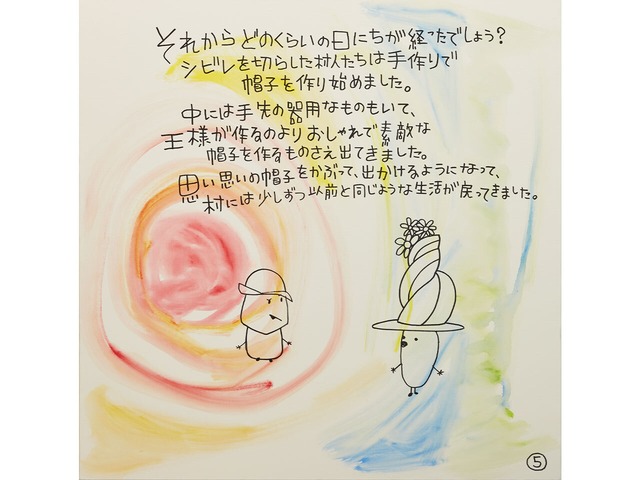 それからどのくらいの日にちが経ったでしょう?
シビレを切らした村人たちは手作りで
帽子を作り始めました。
中には手先の器用なものもいて、
王様が作るのよりおしゃれで素敵な
帽子を作るものさえ出てきました。
思い思いの帽子をかぶって、出かけるようになって、
村には少しずつ以前と同じような生活が戻ってきました。
5